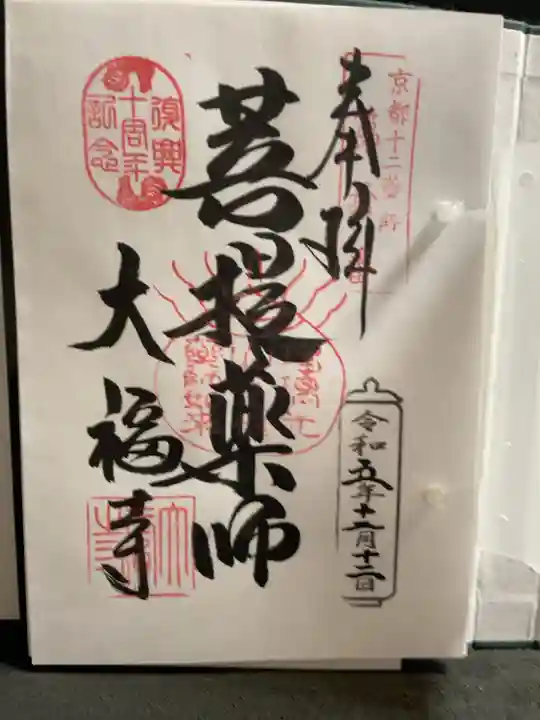 奉拝
京都十二薬師
菩提薬師
大福寺
復興
十周年
記念
令和五年十二月十二日